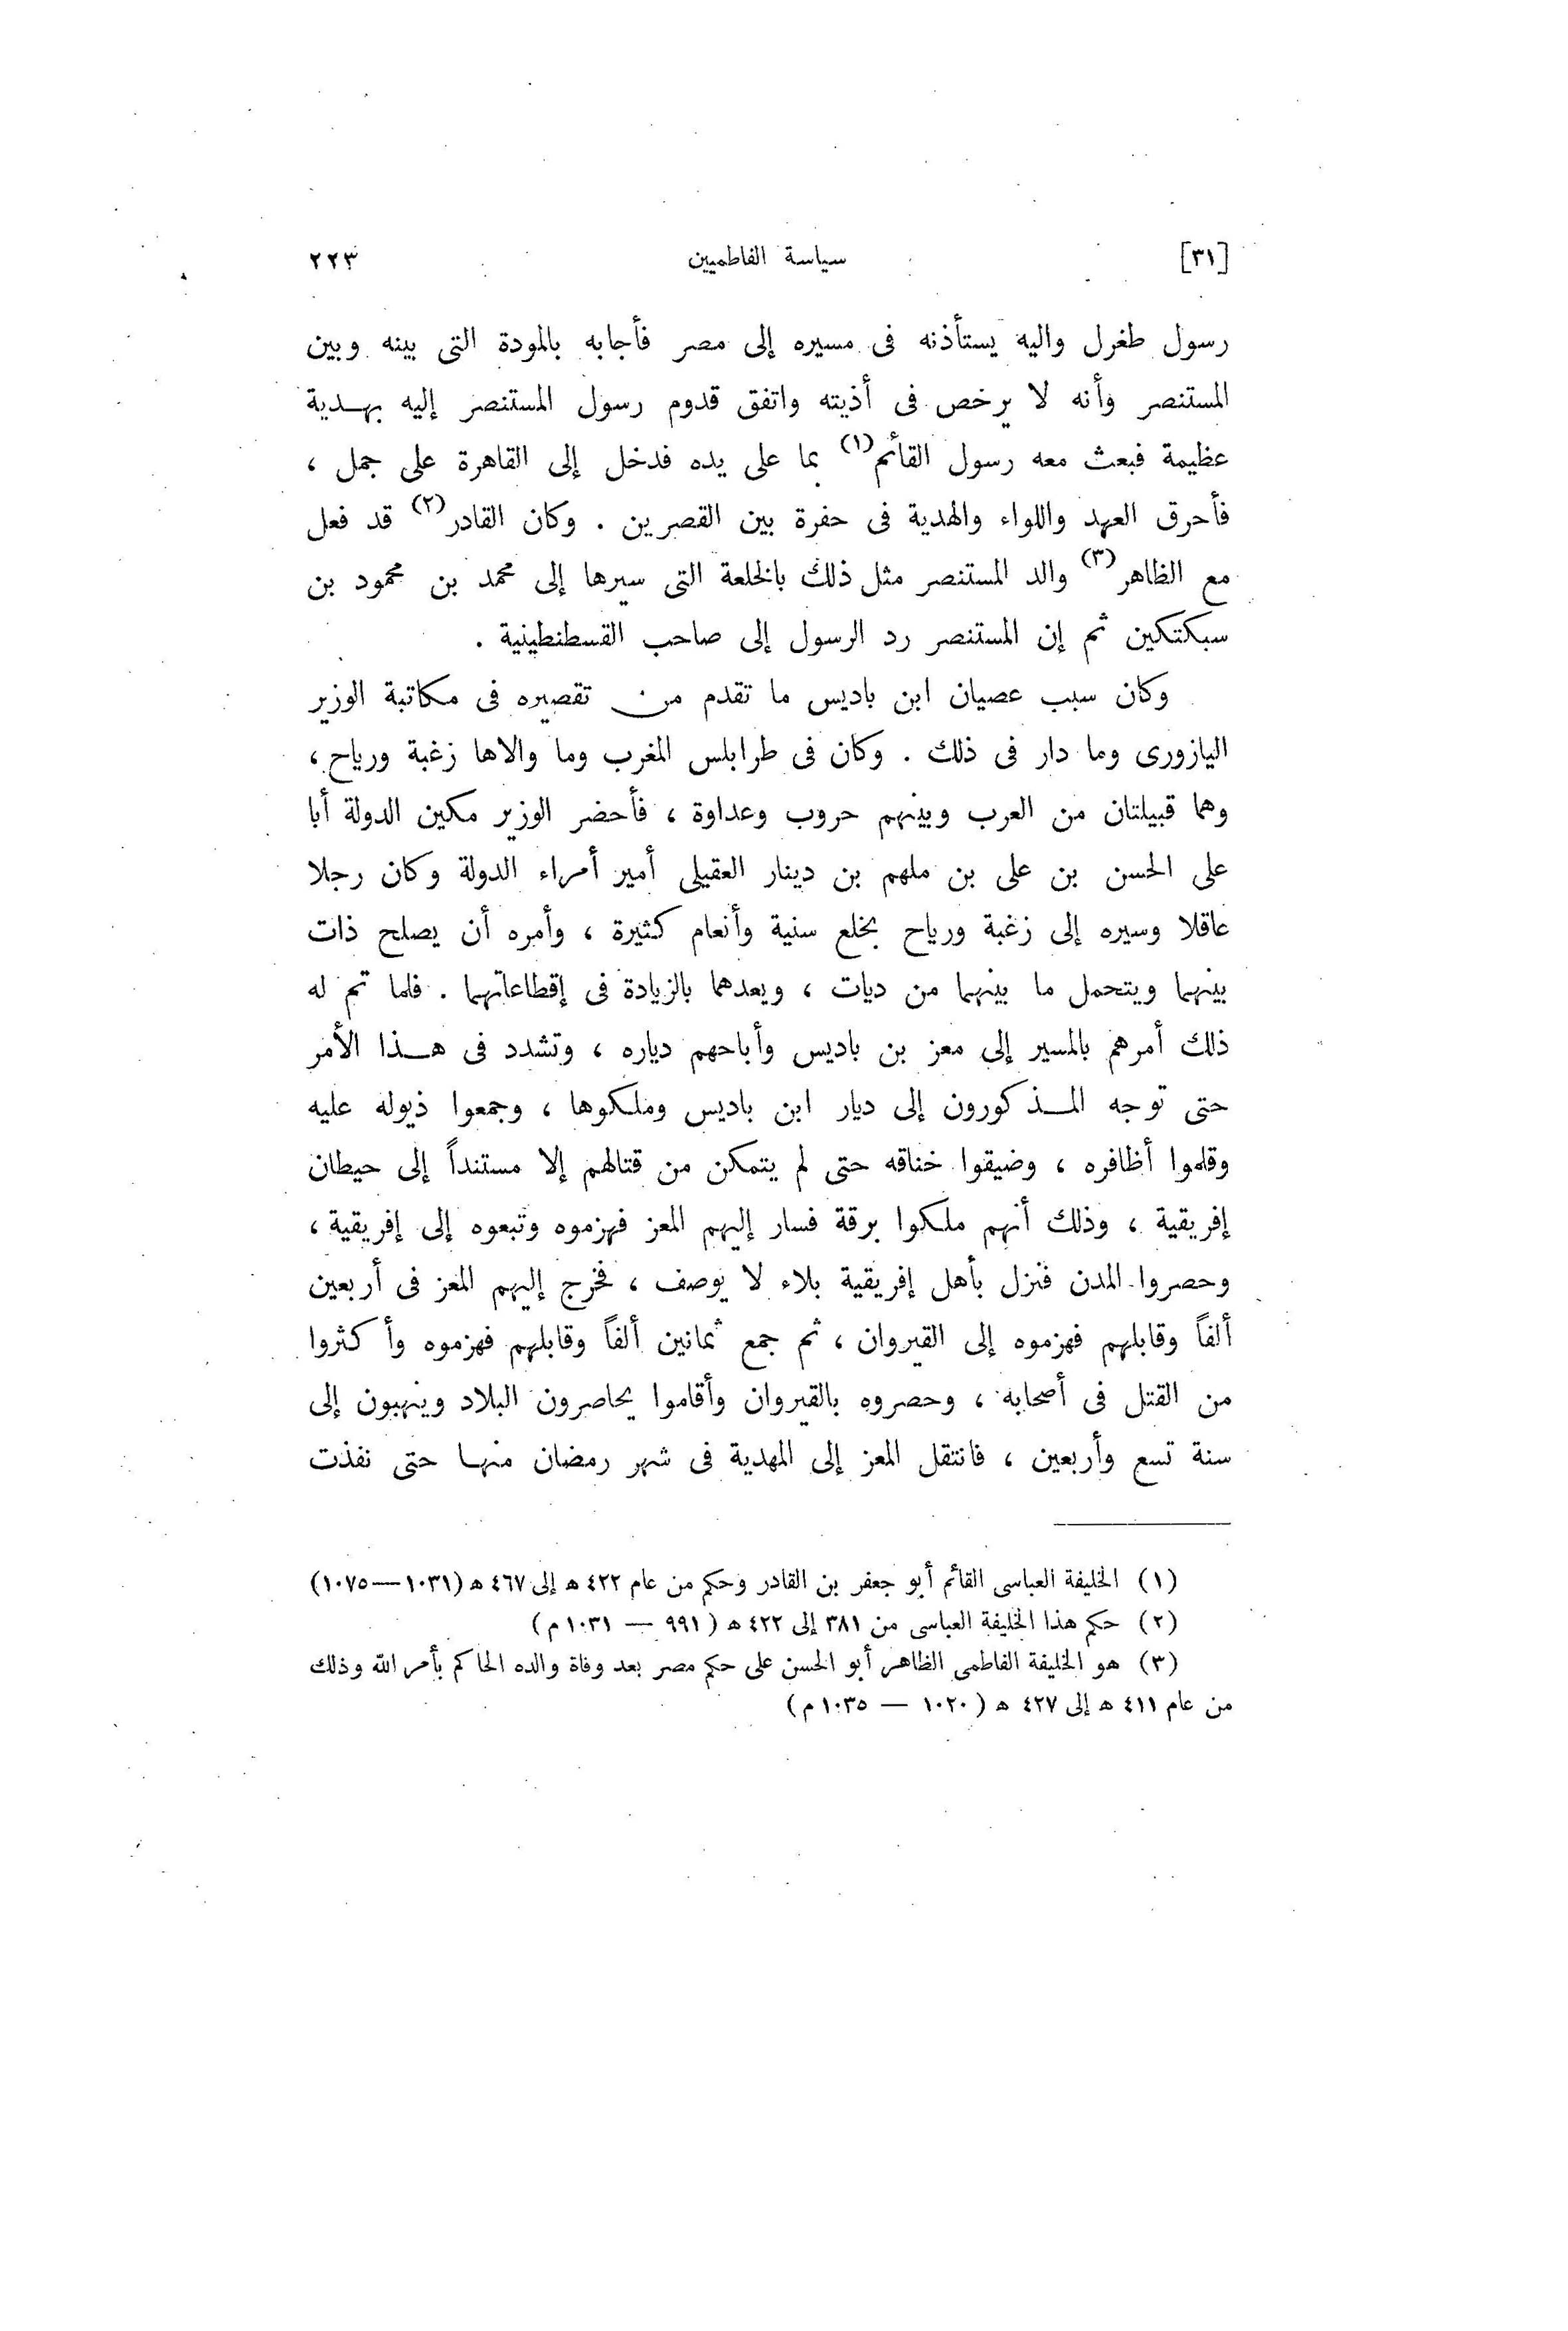 [٣١] سياسة الفاطميين ٢٢٣
رسول طغرل واليه يستأذنه فى مسيره إلى مصر فأجابه بالمودة التى بينه وبين
المستنصر وأنه لا يرخص فى أذيته واتفق قدوم رسول المستنصر إليه بهدية
عظيمة فبعث معه رسول القائم(١) بما على يده فدخل إلى القاهرة على جمل ،
فأحرق العهد واللواء والهدية فى حفرة بين القصرين . وكان القادر(٢) قد فعل
مع الظاهر(٣) والد المستنصر مثل ذلك بالخلعة التى سيرها إلى محمد بن محمود بن
سبكتكين ثم إن المستنصر رد الرسول إلى صاحب القسطنطينية .
وكان سبب عصيان ابن باديس ما تقدم من تقصيره فى مكاتبة الوزير
اليازورى وما دار فى ذلك . وكان فى طرابلس المغرب وما والاها زغبة ورياح ،
وهما قبيلتان من العرب وبينهم حروب وعداوة ، فأحضر الوزير مكين الدولة أبا
على الحسن بن على بن ملهم بن دينار العقيلى أمير أمراء الدولة وكان رجلا
عاقلا وسيره إلى زغبة ورياح بخلع سنية وأنعام كثيرة ، وأمره أن يصلح ذات
بينهما ويتحمل ما بينهما من ديات ، ويعدهما بالزيادة فى إقطاعاتهما . فلما تم له
ذلك أمرهم بالمسير إلى معز بن باديس وأباحهم دياره ، وتشدد فى هذا الأمر
حتى توجه المذكورون إلى ديار ابن باديس وملكوها ، وجمعوا ذيوله عليه
وقلموا أظافره ، وضيقوا خناقه حتى لم يتمكن من قتالهم إلا مستنداً إلى حيطان
إفريقية ، وذلك أنهم ملكوا برقة فسار إليهم المعز فهزموه وتبعوه إلى إفريقية ،
وحصروا المدن فنزل بأهل إفريقية بلاء لا يوصف ، فخرج إليهم المعز فى أربعين
ألفاً وقابلهم فهزموه إلى القيروان ، ثم جمع ثمانين ألفاً وقابلهم فهزموه وأكثروا
من القتل فى أصحابه ، وحصروه بالقيروان وأقاموا يحاصرون البلاد وينهبون إلى
سنة تسع وأربعين ، فانتقل المعز إلى المهدية فى شهر رمضان منها حتى نفذت
(١) الخليفة العباسى القائم أبو جعفر بن القادر وحكم من عام ٤٢٢ ه إلى ٤٦٧ ه (١٠٣١—١٠٧٥)
(٢) حكم هذا الخليفة العباسى من ٣٨١ إلى ٤٢٢ ه ( ٩٩١ — ١٠٣١ م)
(٣) هو الخليفة الفاطمى الظاهر أبو الحسن على حكم مصر بعد وفاة والده الحاكم بأمر الله وذلك
من عام ٤١١ ه إلى ٤٢٧ ه ( ١٠٢٠ — ١٠٣٥ م)